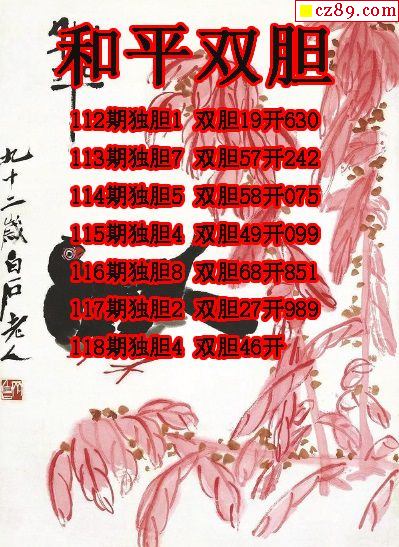 cz89.com
和平双胆
112期独胆1 双胆19开630
113期独胆7 双胆57开242
114期独胆5 双胆58开075
115期独胆4 双胆49开099
116期独胆8 双胆68开851
117期独胆2 双胆27开989
118期独胆4 双胆46开
九十二岁白石老人